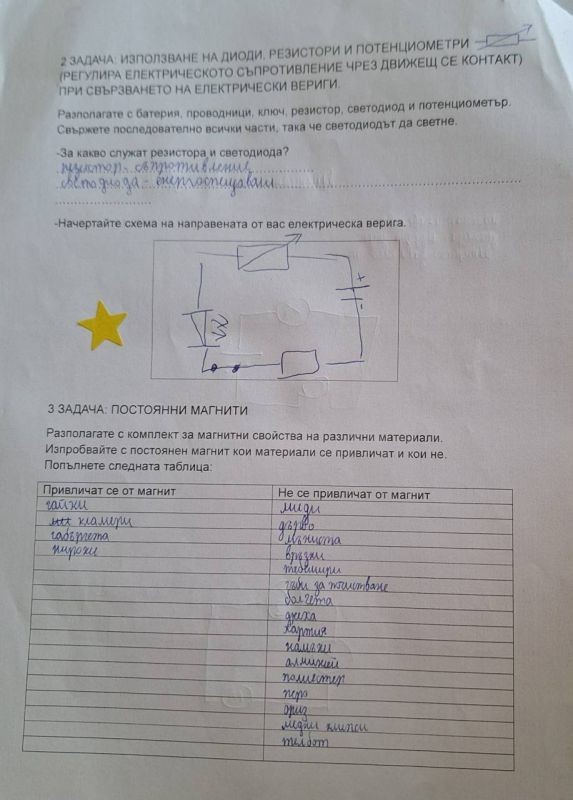 2 ЗАДАЧА: ИЗПОЛЗВАНЕ НА ДИОДИ, РЕЗИСТОРИ И ПОТЕНЦИОМЕТРИ
(РЕГУЛИРА ЕЛЕКТРИЧЕСКОТО СЪПРОТИВЛЕНИЕ ЧРЕЗ ДВИЖЕЩ СЕ КОНТАКТ)
ПРИ СВЪРЗВАНЕТО НА ЕЛЕКТРИЧЕСКИ ВЕРИГИ.
Разполагате с батерия, проводници, ключ, резистор, светодиод и потенциометър.
Свържете последователно всички части, така че светодиодът да светне.
-За какво служат резистора и светодиода?
резистор - съпротивление
светодиода - енергоспестяващ
-Начертайте схема на направената от вас електрическа верига.
+
-
3 ЗАДАЧА: ПОСТОЯННИ МАГНИТИ
Разполагате с комплект за магнитни свойства на различни материали.
Изпробвайте с постоянен магнит кои материали се привличат и кои не.
Попълнете следната таблица:
Привличат се от магнит Не се привличат от магнит
гайки миди
кламери дърво
габърчета мъниста
пирони връзки
тебешири
гъби за почистване
болчета
дреха
хартия
камъни
алуминий
полиестер
перо
ориз
медни клипси
талбот